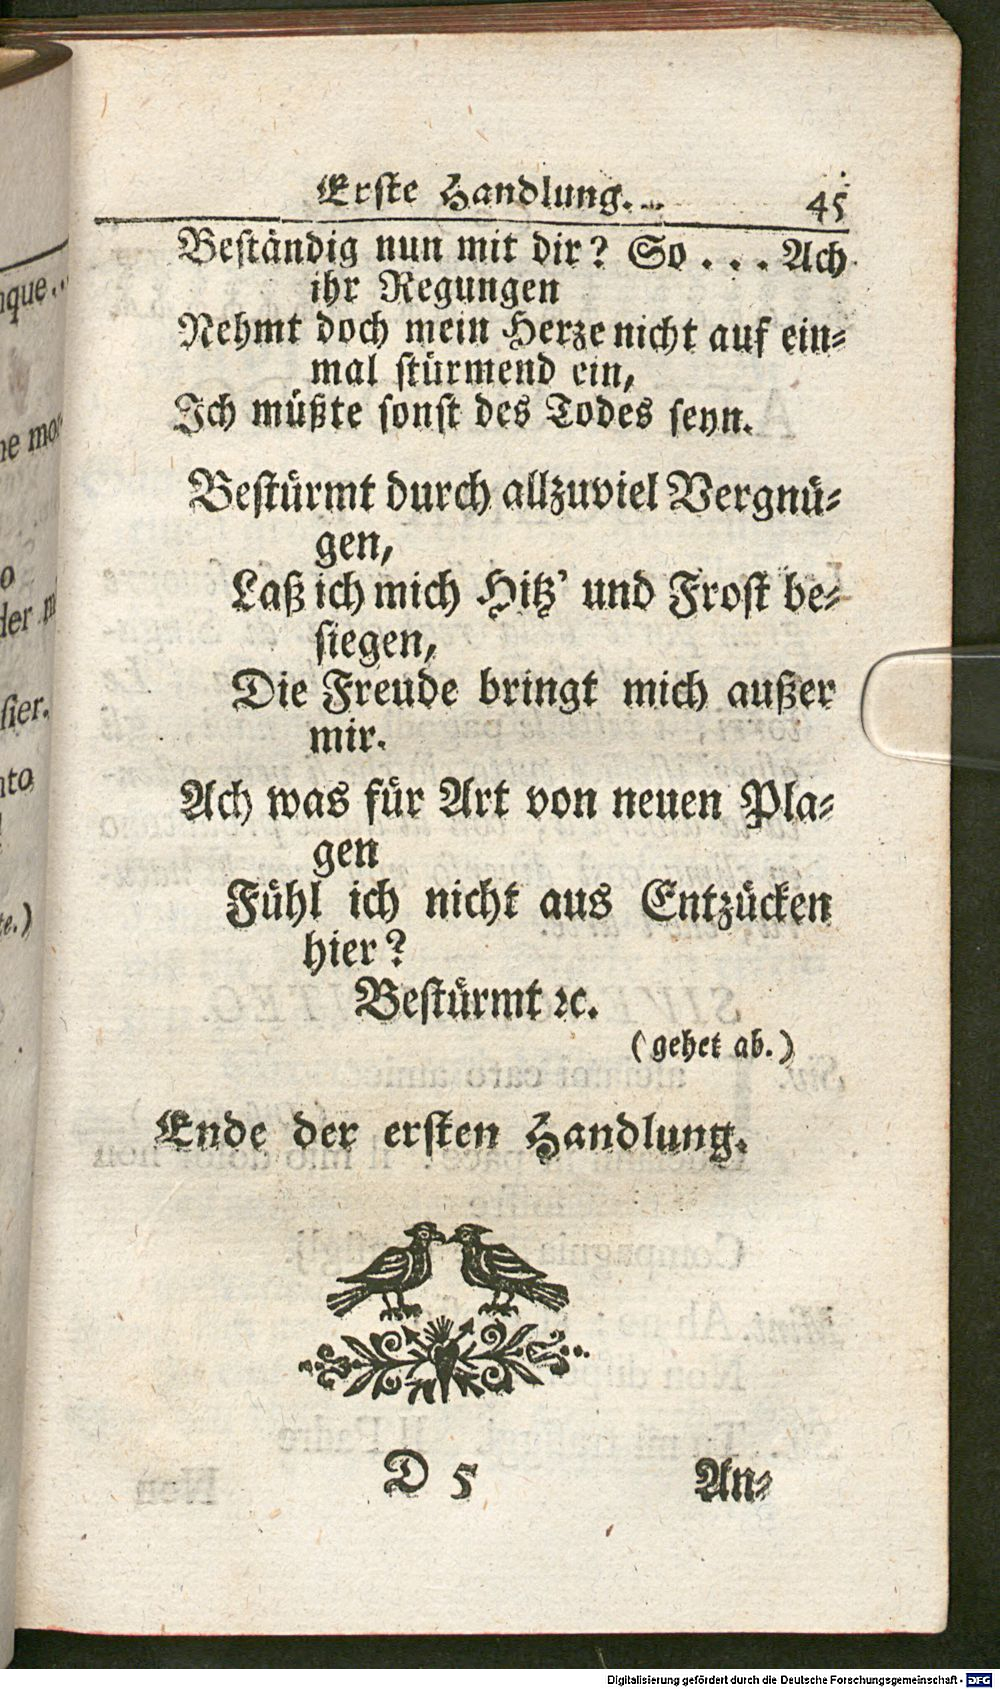 Erste Handlung. 45
Beständig nun mit dir? So . . . Ach
ihr Regungen
Nehmt doch mein Herze nicht auf ein⸗
mal stürmend ein,
Ich müßte sonst des Todes seyn.
Bestürmt durch allzuviel Vergnü⸗
gen,
Laß ich mich Hitz' und Frost be⸗
siegen,
Die Freude bringt mich außer
mir.
Ach was für Art von neuen Pla⸗
gen
Fühl ich nicht aus Entzücken
hier?
Bestürmt ꝛc.
(gehet ab.)
Ende der ersten Handlung.
D 5 An⸗
Digitalisierung gefördert durch die Deutsche Forschungsgemeinschaft - DFG